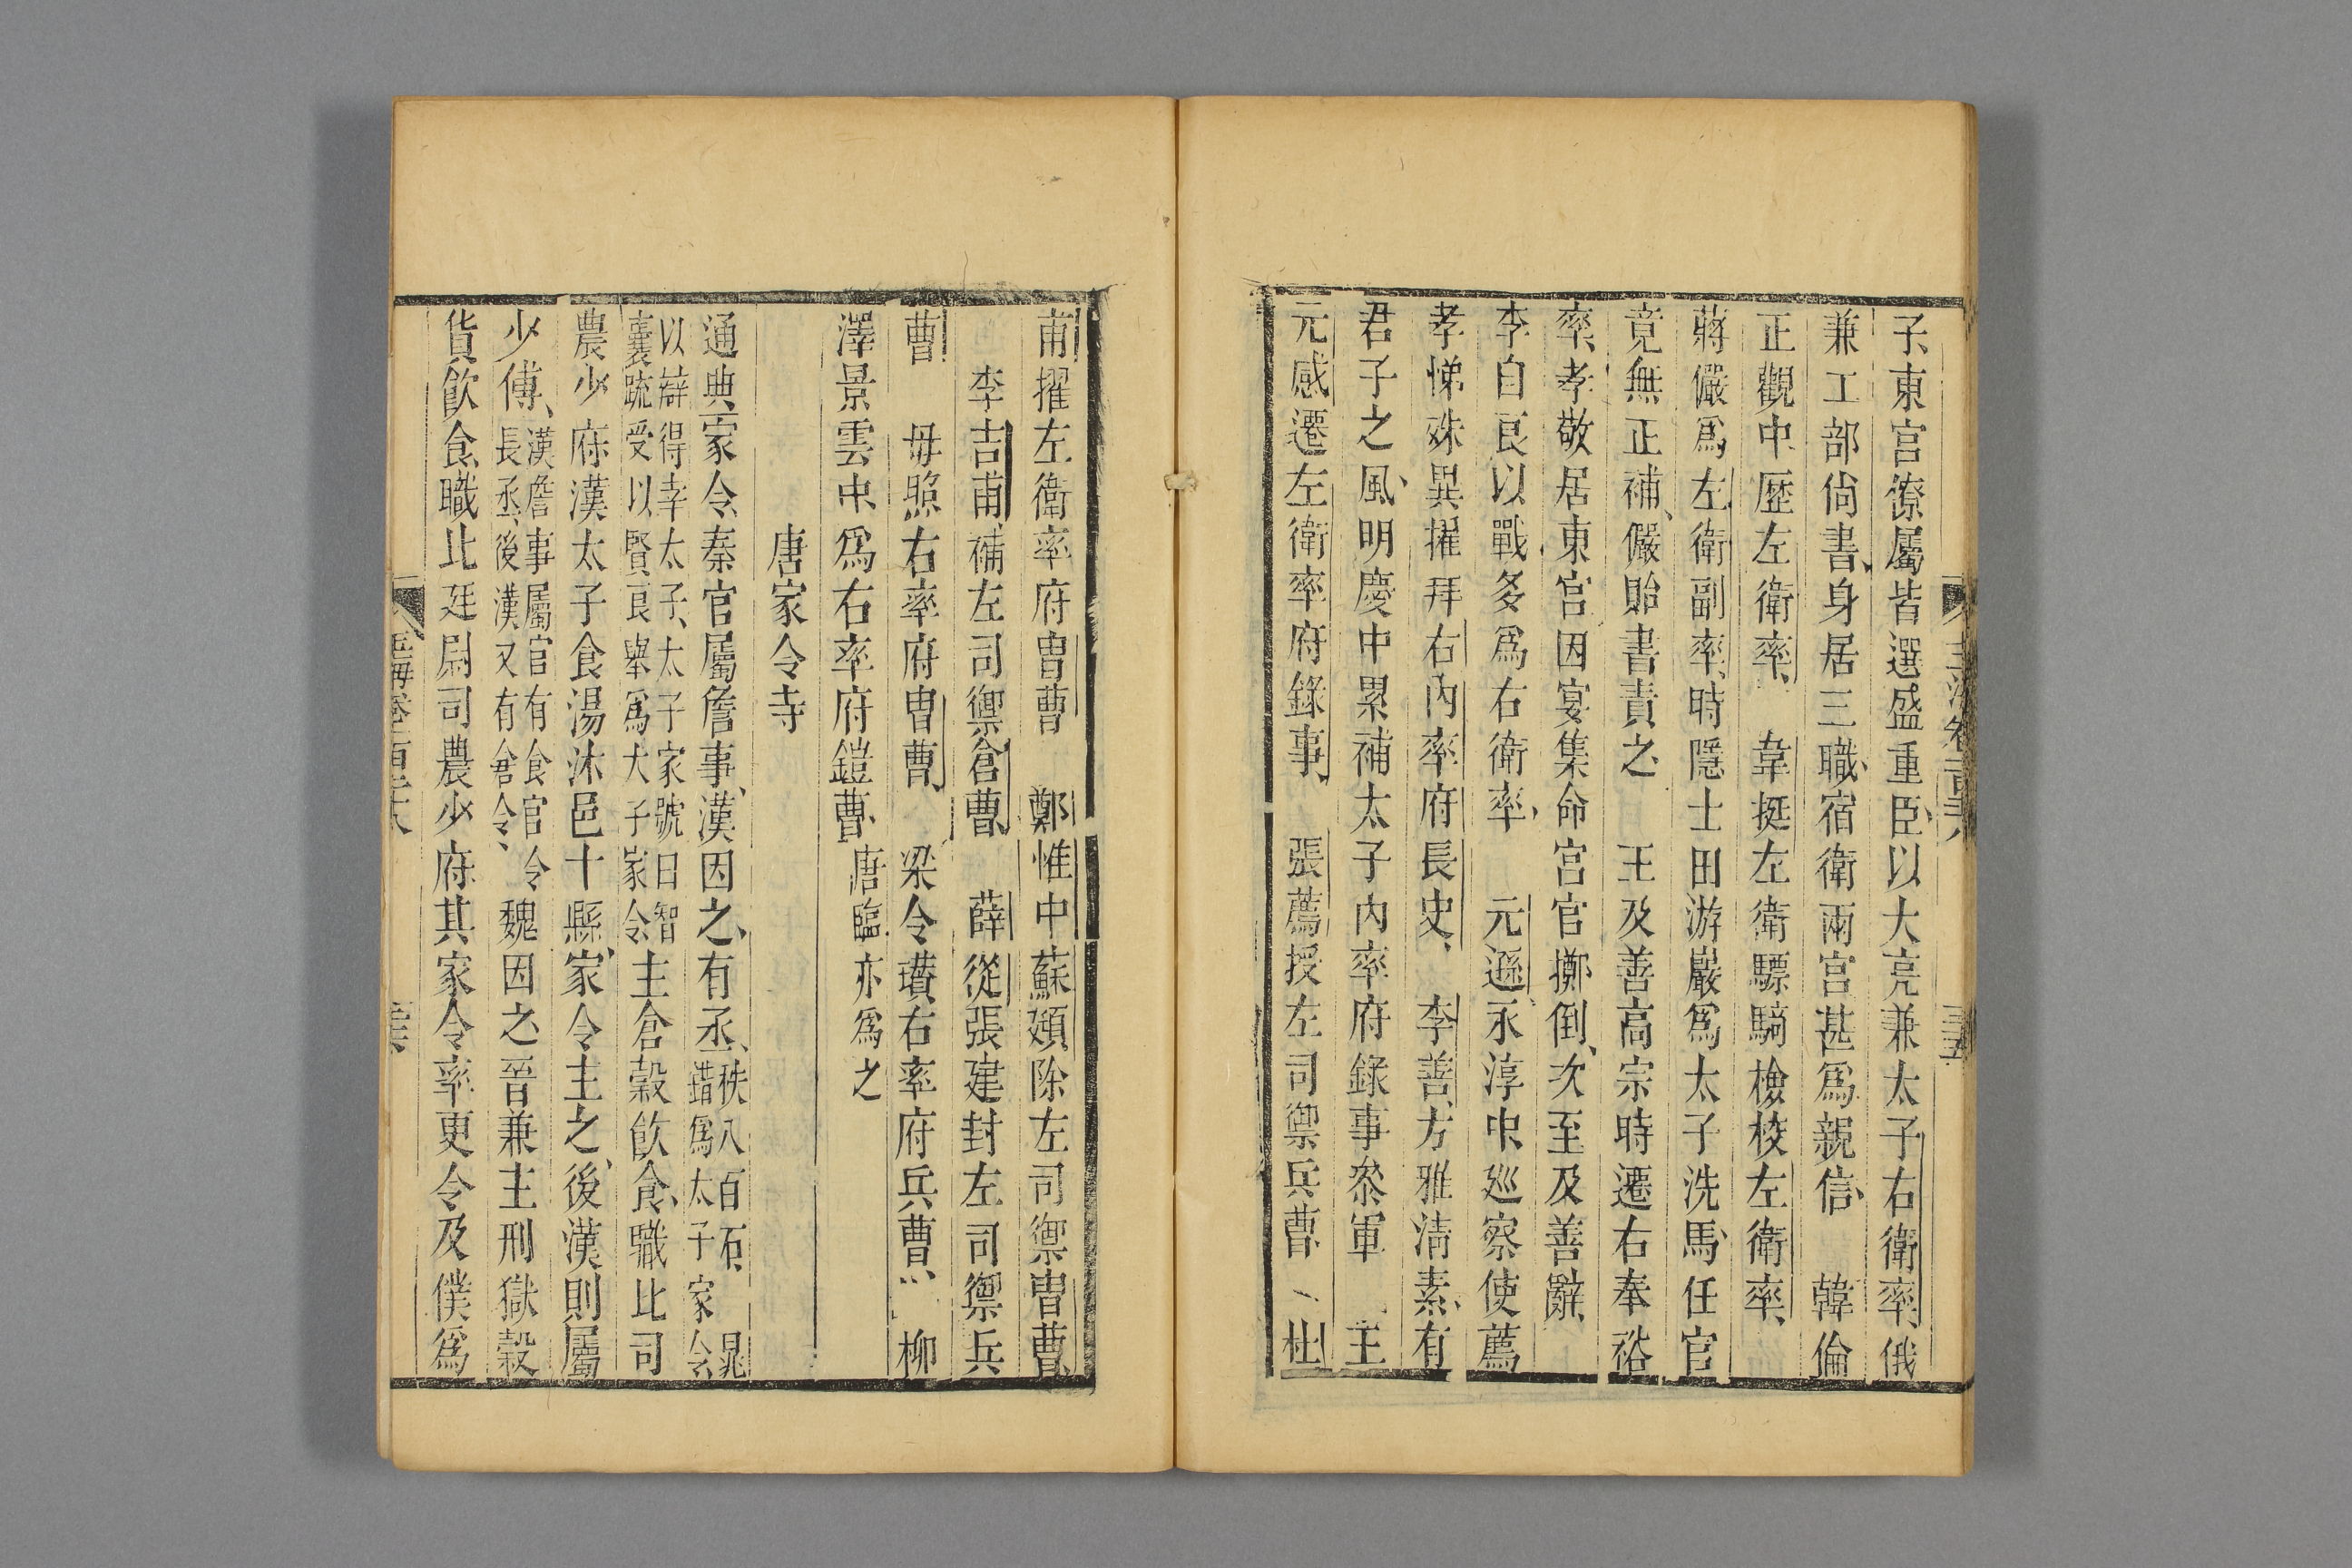 子、東宫僚屬皆選盛重臣、以大亮兼太子右衛率、俄
兼工部尙書、身居三職、宿衛兩宫甚爲親信、 韓倫
正觀中、歴左衛率、 韋挺左衛驃騎檢校左衛率、
蔣儼爲左衛副率、時隱士田游巖爲太子洗馬、任官
竟無正補、儼貽書責之、 王及善高宗時遷右奉裕
率、孝敬居東宫、因宴集命宫官擲倒、次至及善辭、
李自良以戰多爲右衛率、 元遜永淳中、廵察使薦
孝悌殊異擢拜右内率府長史、 李善、方雅淸素、有
君子之風、明慶中累補太子内率府錄事叅軍 王
元感遷左衛率府錄事、 張薦授左司禦兵曹、 杜
甫擢左衛率府胄曹 鄭惟中蘇頲除左司禦胄曹、
李吉甫、補左司禦倉曹、 薛從張建封左司禦兵
曹 毋煚右率府胄曹、 梁令瓚右率府兵曹、 柳
澤景雲中、爲右率府鎧曹、唐臨亦爲之
唐家令寺
通典、家令、秦官屬詹事、漢因之、有丞、秩八百石、 晁
錯爲太子家令、
以辯得幸太子、太子家號曰智
囊䟽受以賢良舉爲太子家令、主倉穀飲食、職比司
農少府、漢太子食湯沐邑十縣、家令主之、後漢則屬
少傅、漢詹事屬官有食官令
長丞、後漢又有倉令、魏因之、晉兼主刑獄穀
貨飲食、職比廷尉司農少府、其家令率更令及僕爲